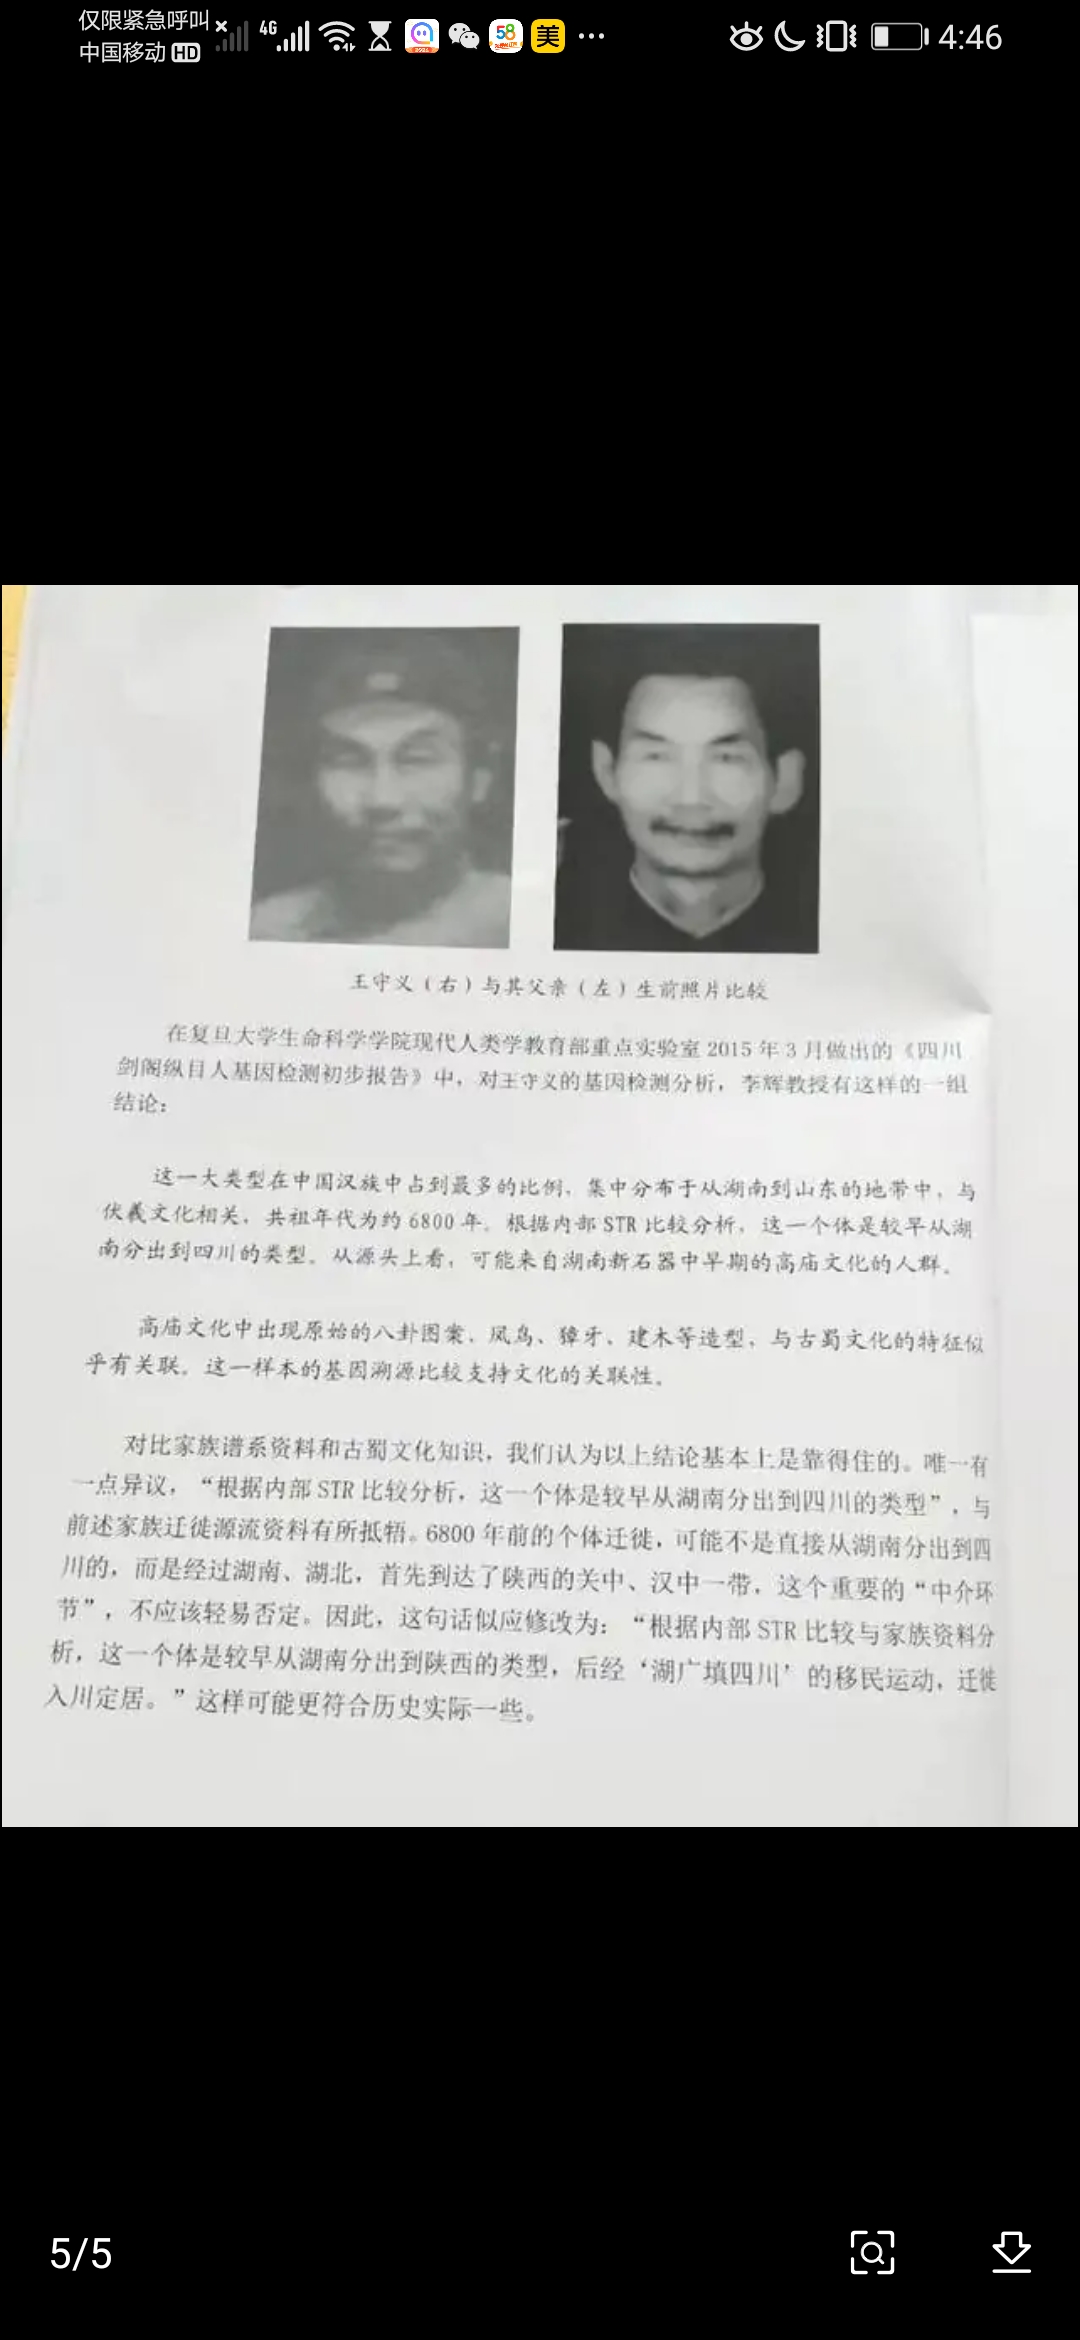 仅限紧急呼叫
中国移动 HD
4G
58
美
4:46
王守义（右）与其父亲（左）生前照片比较
在复旦大学生命科学学院现代人类学教育部重点实验室 2015 年 3 月做出的《四川
剑阁纵目人基因检测初步报告》中，对王守义的基因检测分析，李辉教授有这样的一组
结论：
这一大类型在中国汉族中占到最多的比例，集中分布于从湖南到山东的地带中，与
伏羲文化相关，共祖年代为约 6800 年。根据内部 STR 比较分析，这一个体是较早从湖
南分出到四川的类型。从源头上看，可能来自湖南新石器中早期的高庙文化的人群。
高庙文化中出现原始的八卦图案、凤鸟、獐牙、建木等造型，与古蜀文化的特征似
乎有关联。这一样本的基因溯源比较支持文化的关联性。
对比家族谱系资料和古蜀文化知识，我们认为以上结论基本上是靠得住的。唯一有
一点异议，“根据内部 STR 比较分析，这一个体是较早从湖南分出到四川的类型”，与
前述家族迁徙源流资料有所抵牾。6800 年前的个体迁徙，可能不是直接从湖南分出到四
川的，而是经过湖南、湖北，首先到达了陕西的关中、汉中一带，这个重要的“中介环
节”，不应该轻易否定。因此，这句话似应修改为：“根据内部 STR 比较与家族资料分
析，这一个体是较早从湖南分出到陕西的类型，后经‘湖广填四川’的移民运动，迁徙
入川定居。”这样可能更符合历史实际一些。
5/5